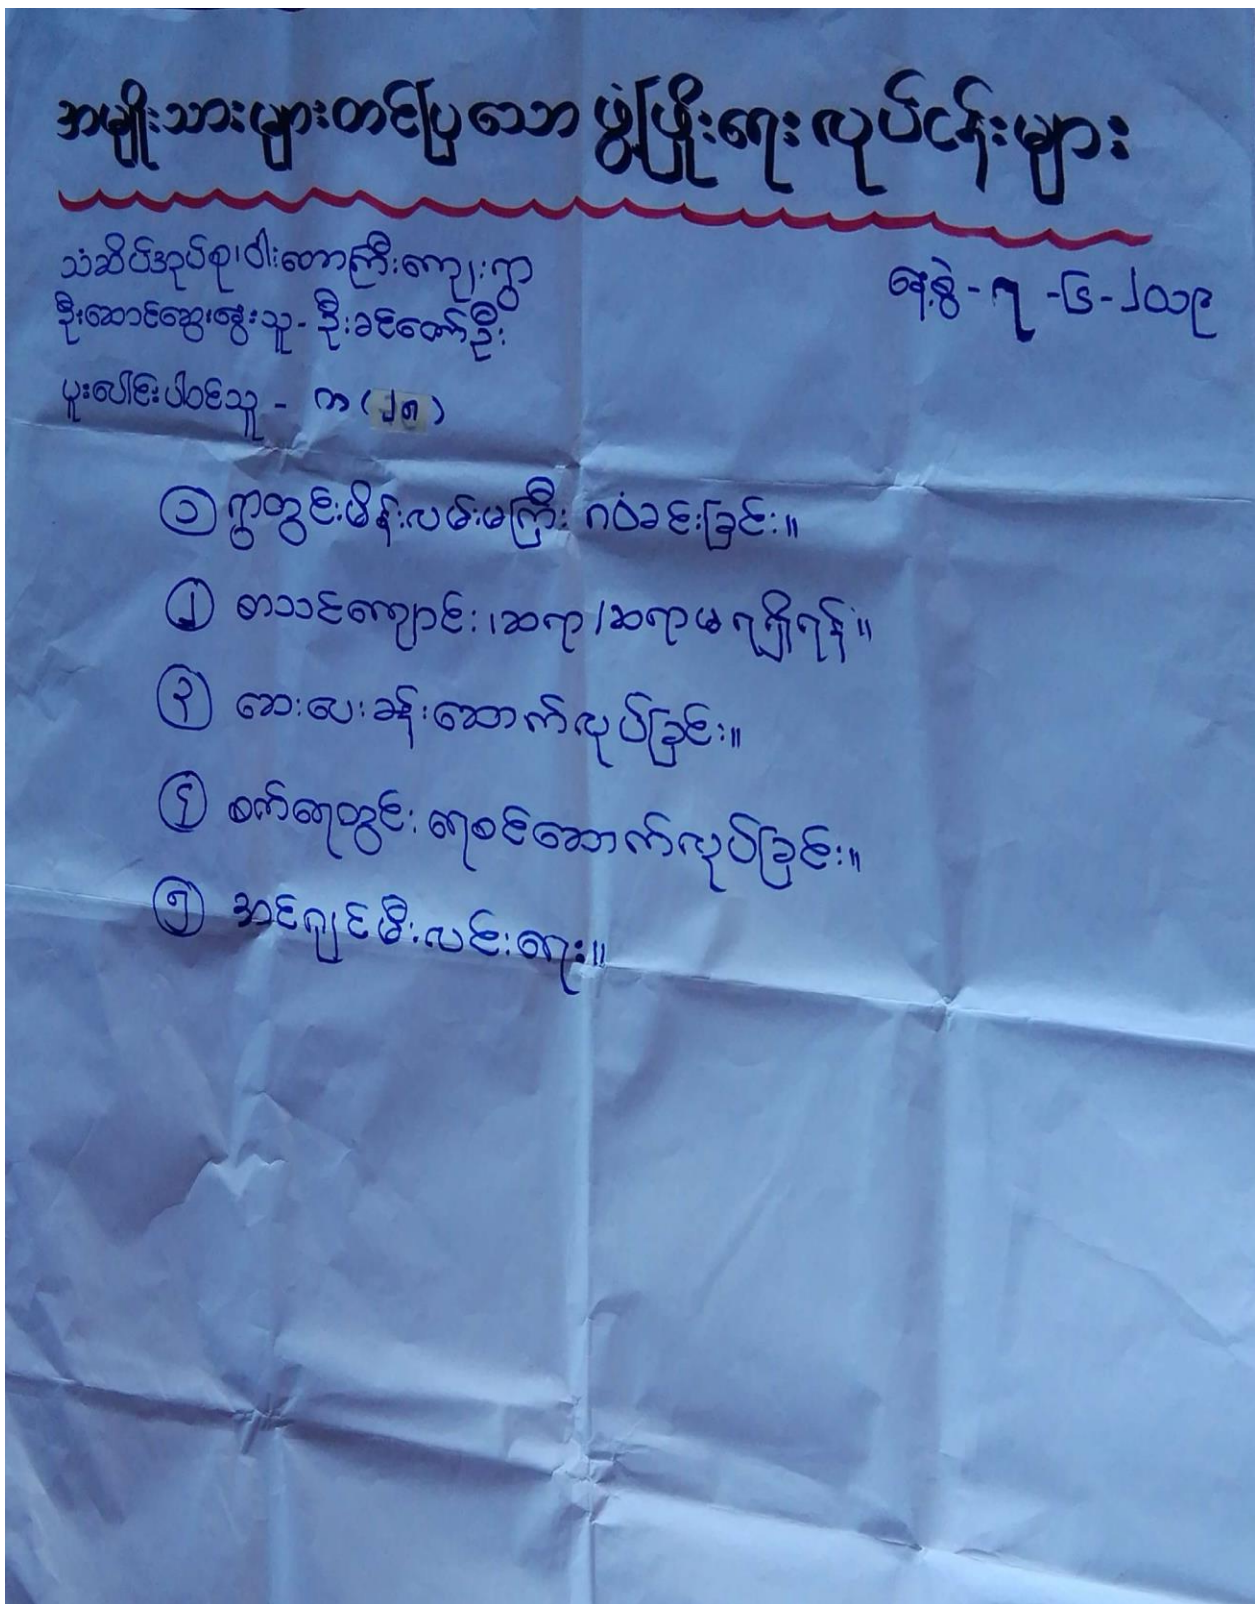 အမျိုးသားများတင်ပြသော ဖွံ့ဖြိုးရေးလုပ်ငန်းများ
သံဆိပ်အုပ်စု၊ဝါးတောကြီးကျေးရွာ
နေ့စွဲ - ၇ - ၆ - ၂၀၁၉
ဦးဆောင်ဆွေးနွေးသူ - ဦးခင်ဇော်ဦး
ပူးပေါင်းပါဝင်သူ - က (၂၈)
၁ ရွာတွင်းမိန်းလမ်းမကြီး ဂဝံခင်းခြင်း။
၂ စာသင်ကျောင်း၊ဆရာ/ဆရာမရရှိရန်။
၃ ဆေးပေးခန်းဆောက်လုပ်ခြင်း။
၄ စက်ရေတွင်း ရေစင်ဆောက်လုပ်ခြင်း။
၅ အင်ဂျင်မီးလင်းရေး။